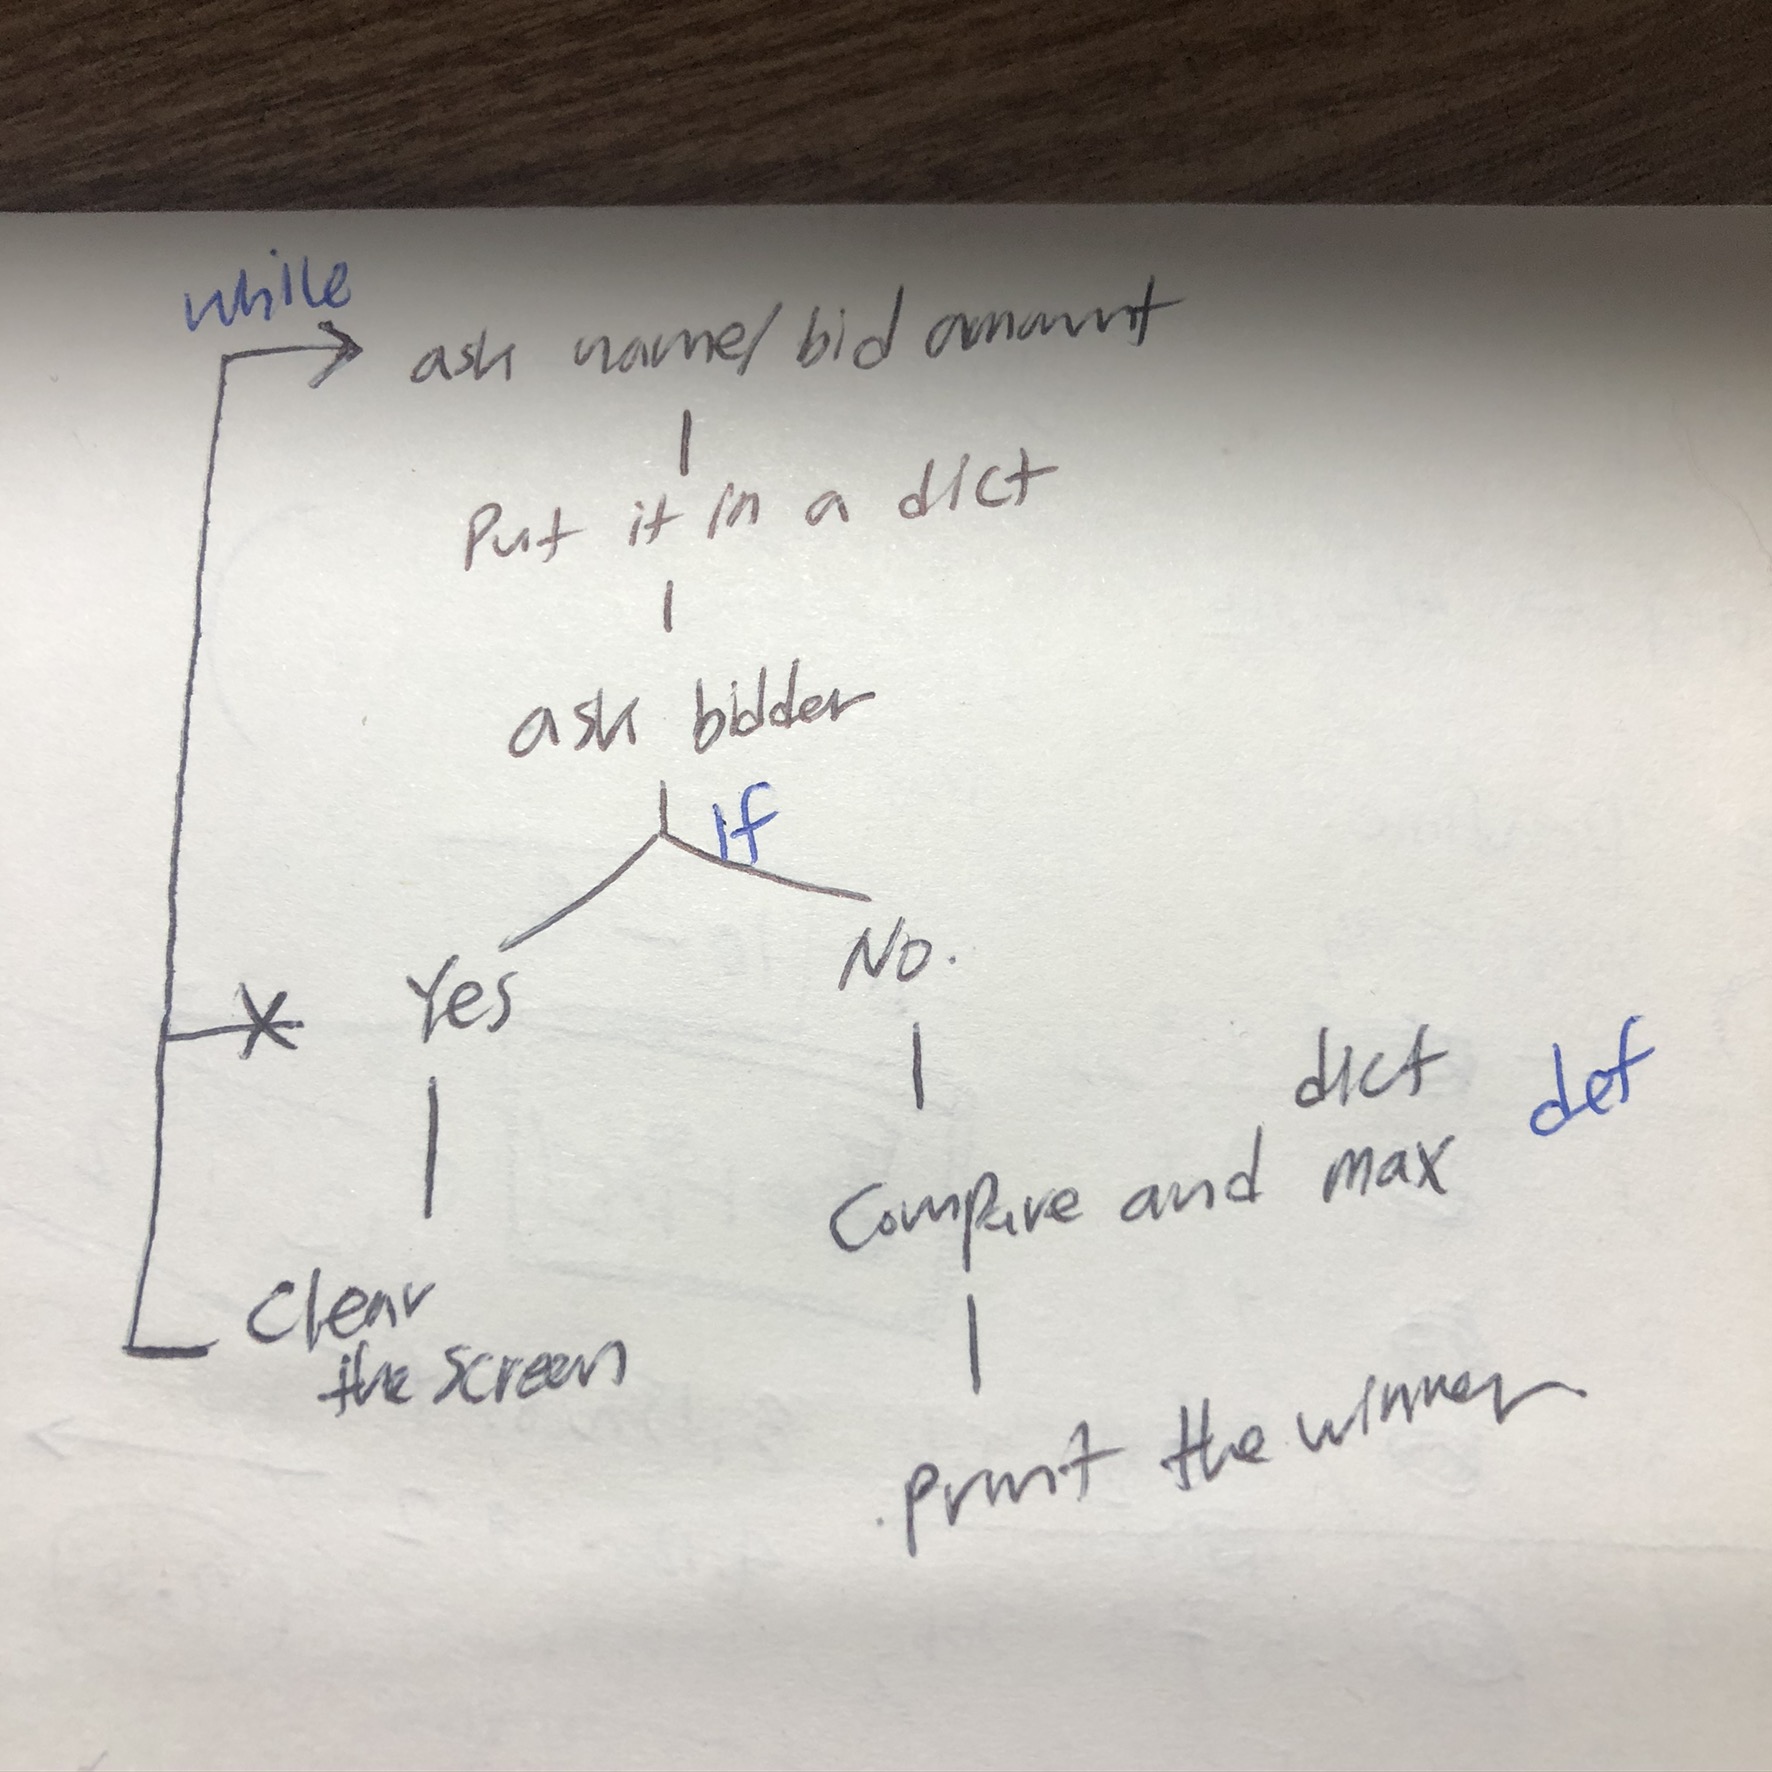 while
ask name/ bid amount
Put it in a dict
ask bidder
if
Yes
No.
dict
def
Compare and max
Clear
the screen
print the winner